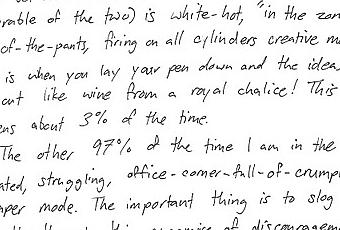 rable of the two) is white-hot, "in the zon
of-the-pants, firing on all cylinders creative m
is when you lay your pen down and the idea
out like wine from a royal chalice! This
ns about 3% of the time.
The other 97% of the time I am in the
ated, struggling, office-corner-full-of-crump
aper mode. The important thing is to slog
of discouragem